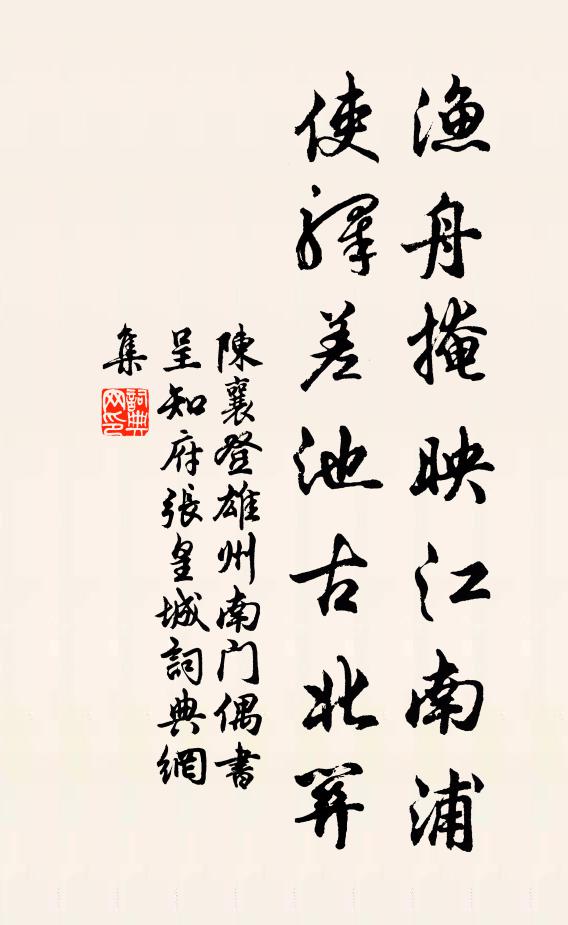 漁舟掩映江南浦
使驛差池古北
陳襄登雄州南门偶書
呈知府張皇城詞典網
集
詞典网印